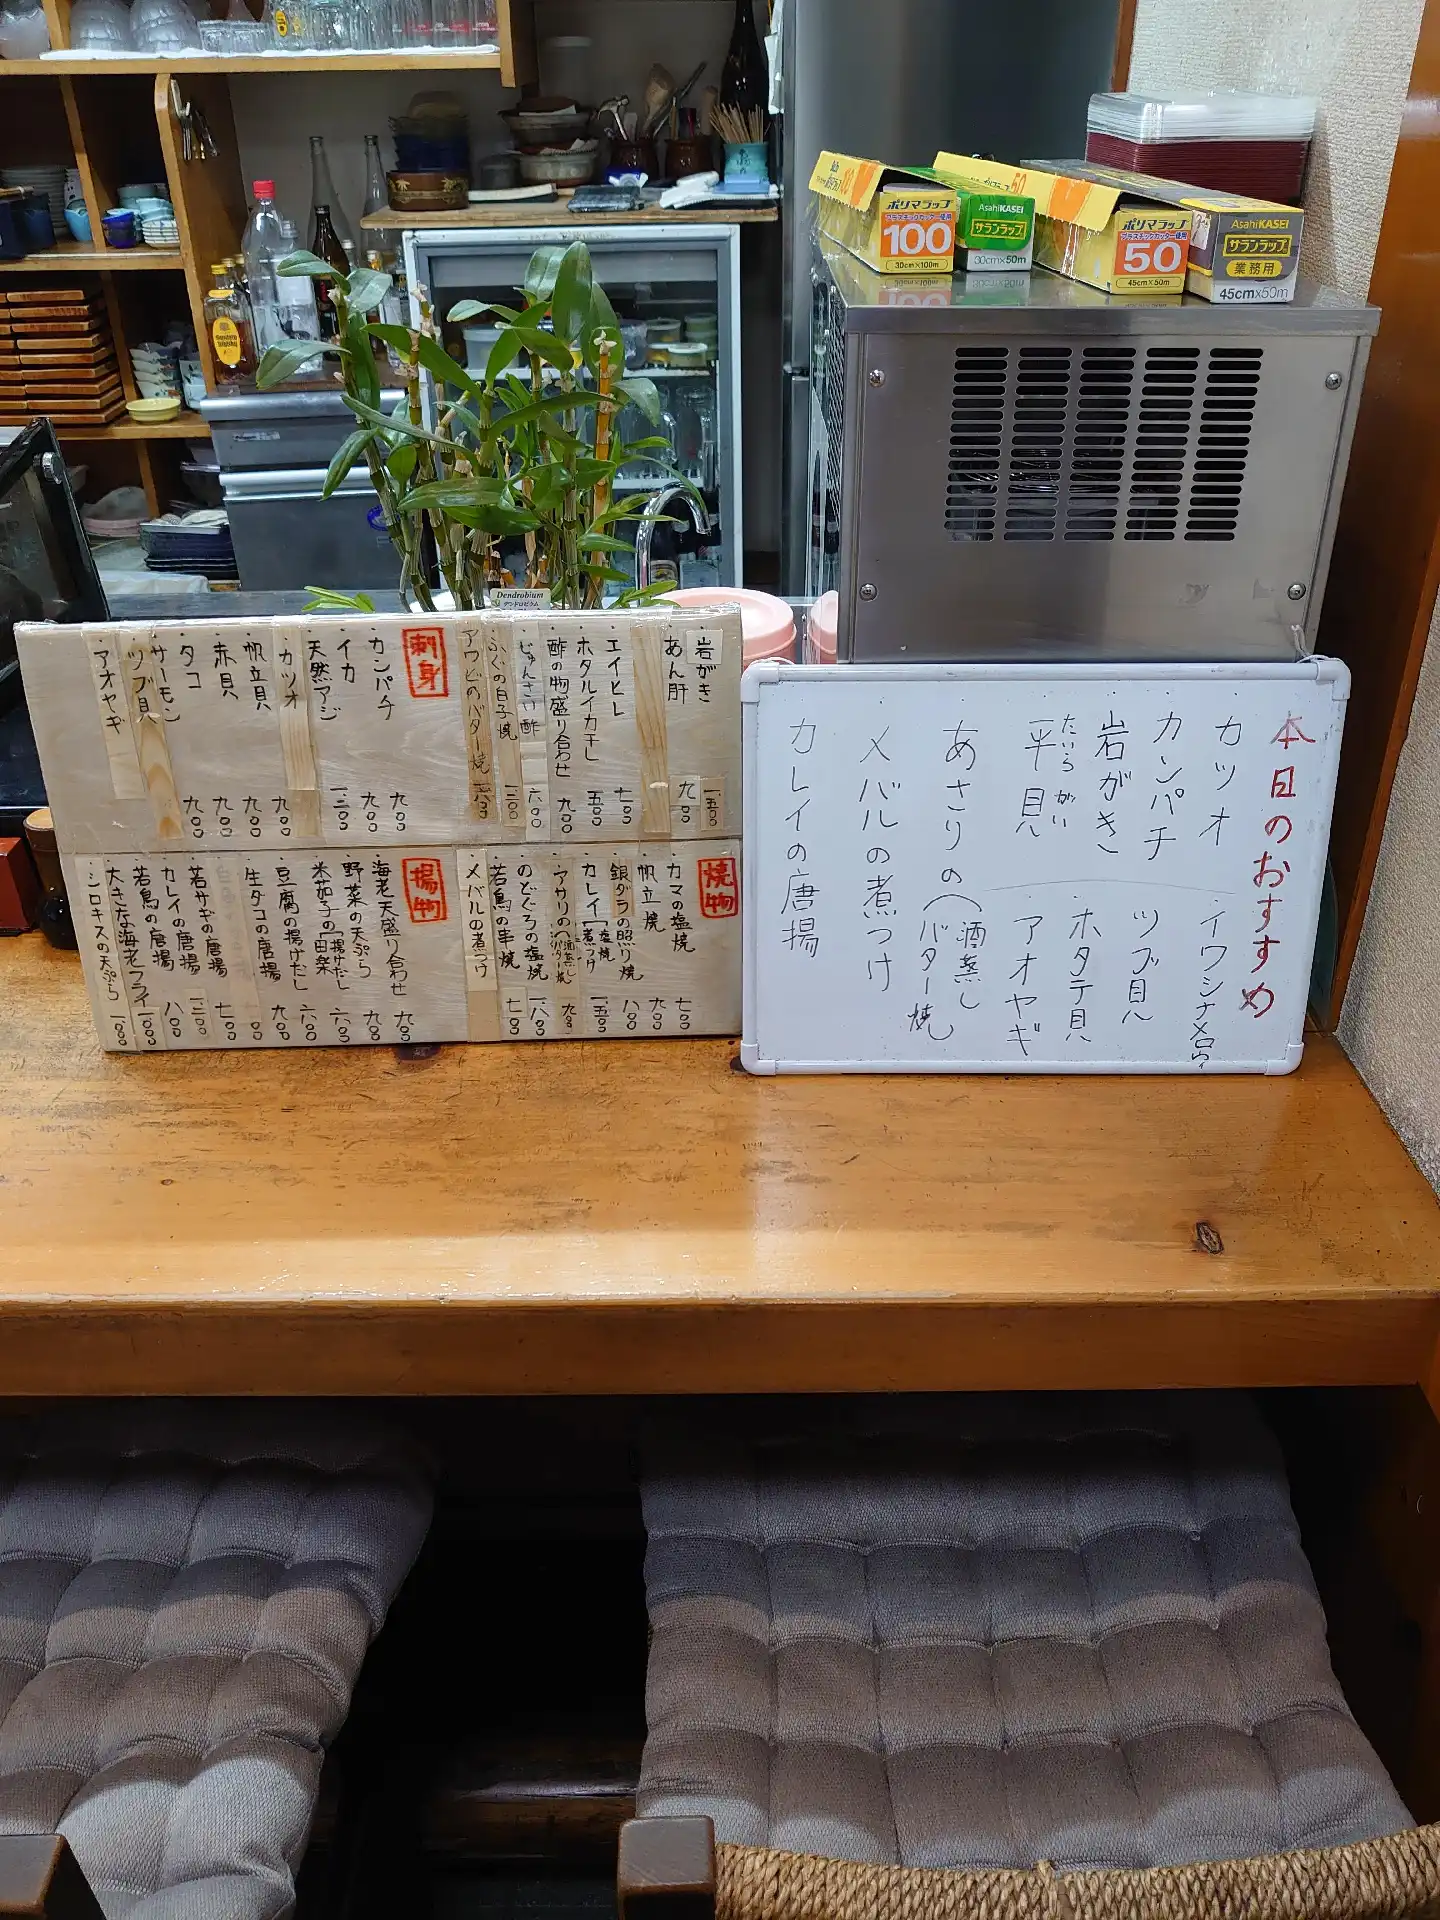 岩がき 一、五〇〇
あん肝 九〇〇
エイヒレ 七〇〇
ホタルイカ干し 五〇〇
酢の物盛り合わせ 九〇〇
じゅんさい酢 六〇〇
ふぐの白子焼 一、二〇〇
アワビのバター焼 一、八〇〇
刺身
カンパチ 九〇〇
イカ 九〇〇
天然アジ 一、二〇〇
カツオ
帆立貝 九〇〇
赤貝 九〇〇
タコ 九〇〇
サーモン 九〇〇
ツブ貝
アオヤギ
焼物
カマの塩焼 七〇〇
帆立焼 九〇〇
銀ダラの照り焼 一八〇〇
カレイ 塩焼 煮つけ 一、五〇〇
アサリの 酒蒸し バター焼 九〇〇
のどぐろの塩焼 一、八〇〇
若鳥の串焼 七〇〇
メバルの煮つけ
揚物
海老天盛り合わせ 九〇〇
野菜の天ぷら 九〇〇
米茄子の 揚げだし 田楽 六〇〇
豆腐の揚げだし 六〇〇
生ダコの唐揚 九〇〇
若サギの唐揚 七〇〇
カレイの唐揚 一、二〇〇
若鳥の唐揚 八〇〇
大きな海老フライ 一、〇〇〇
シロキスの天ぷら 一、〇〇〇
本日のおすすめ
カツオ
カンパチ
岩がき
たいらがい
平貝
イワシナメロウ
ツブ貝
ホタテ貝
アオヤギ
あさりの(酒蒸し バター焼)
メバルの煮つけ
カレイの唐揚
Dendrobium
デンドロビウム
ポリマラップ
プラスチックカッター使用
100
30cm×100m
AsahiKASEI
サランラップ
30cm×50m
ポリマラップ
プラスチックカッター使用
50
45cm×50m
AsahiKASEI
サランラップ
業務用
45cm×50m